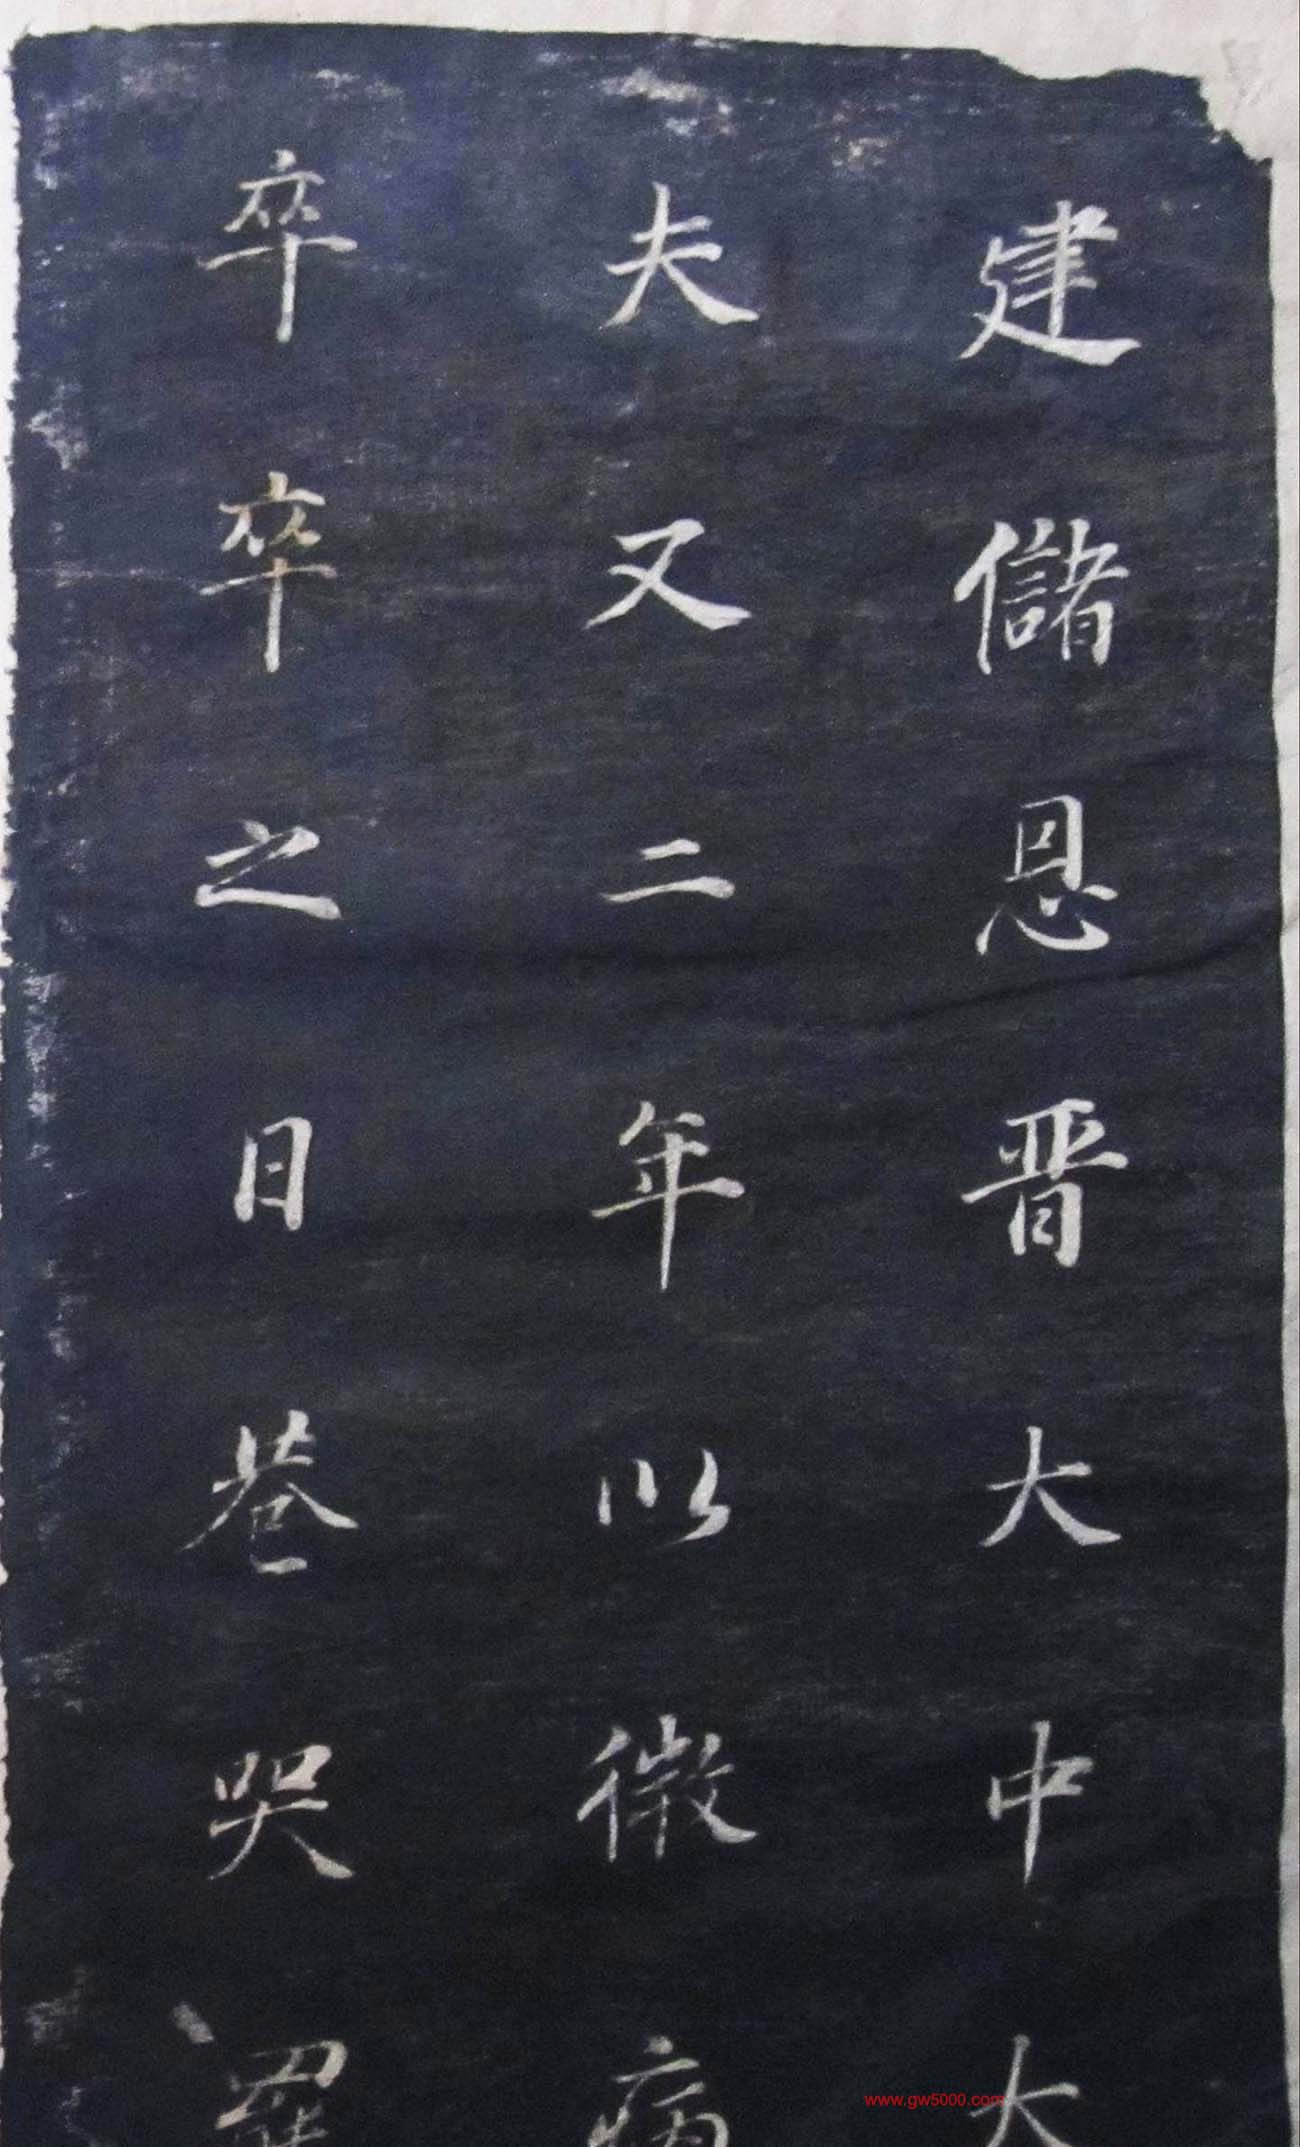 建儲恩晋大中大
夫又二年以微病
卒卒之日巷哭罷
www.gw5000.com